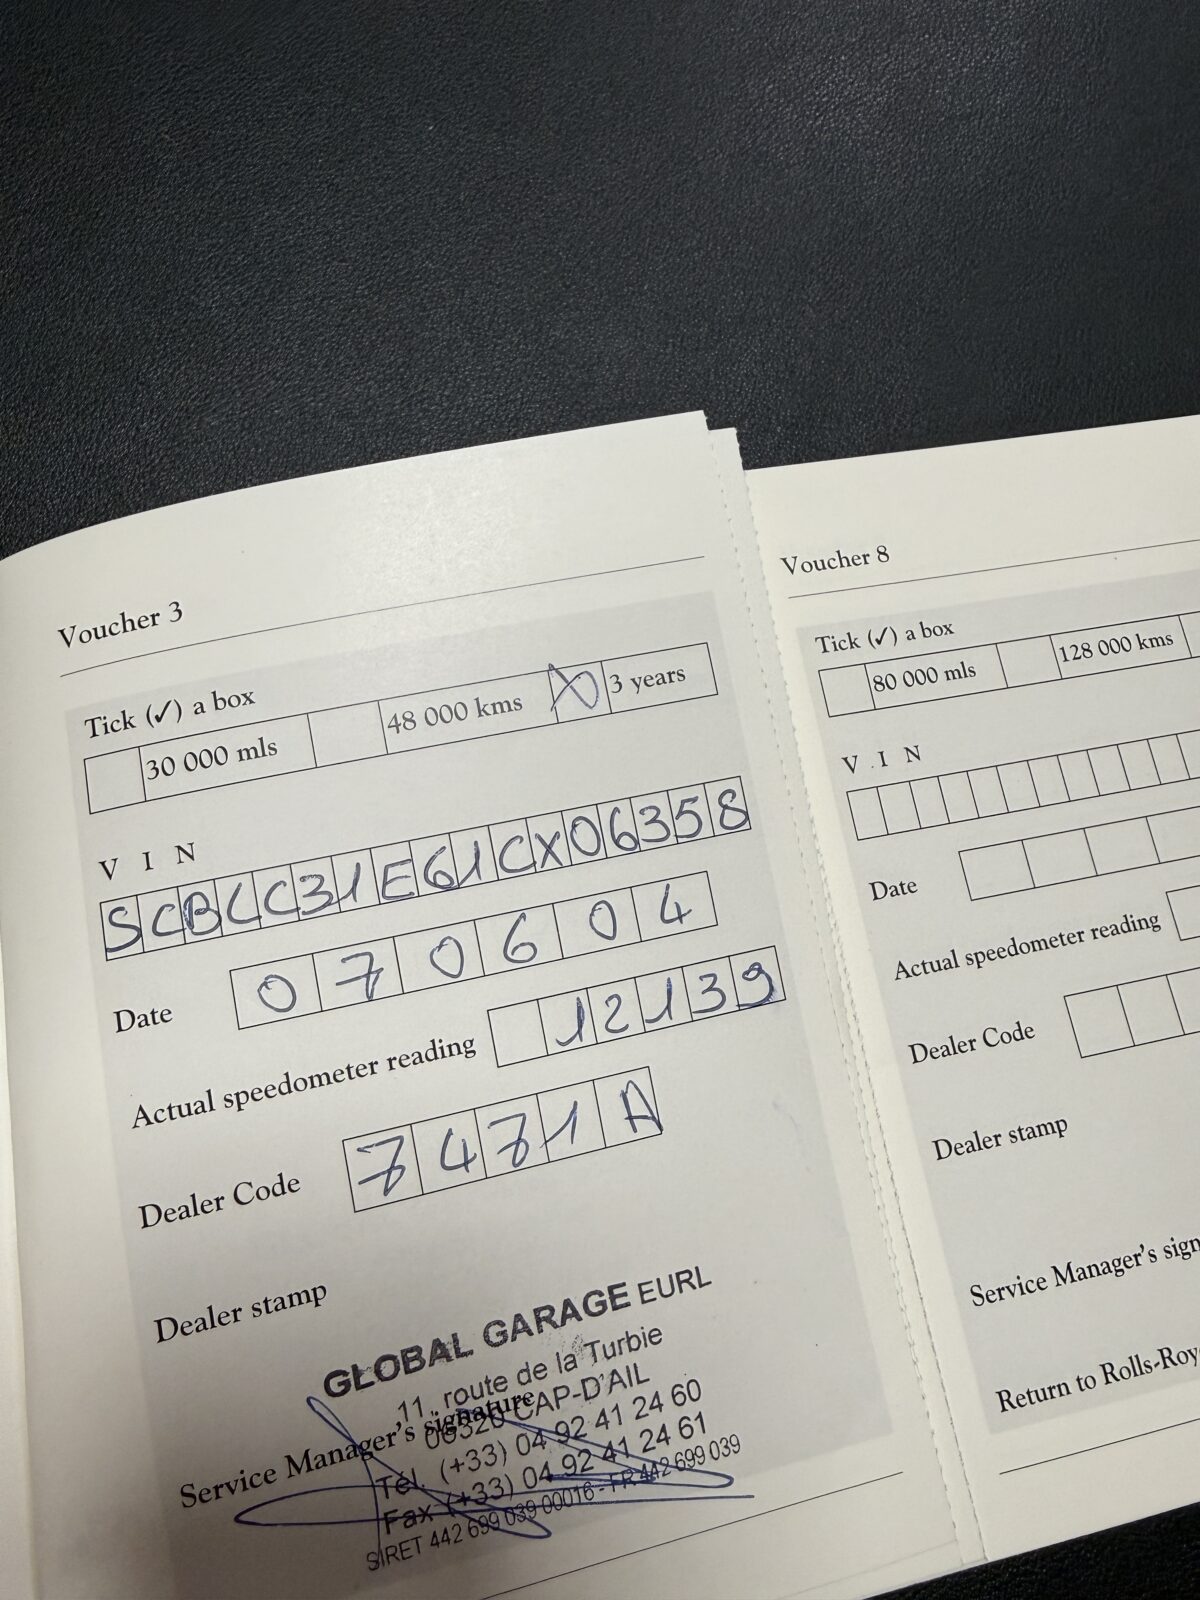 Voucher 3
Tick (✓) a box
30 000 mls
48 000 kms
X
3 years
V I N
SCBLC31E61CX06358
Date
070604
Actual speedometer reading
12139
Dealer Code
7471A
Dealer stamp
GLOBAL GARAGE EURL
11, route de la Turbie
06320 CAP-D'AIL
Service Manager's signature
Tél. (+33) 04 92 41 24 60
Fax (+33) 04 92 41 24 61
SIRET 442 699 039 00016 - FR 442 699 039
Voucher 8
Tick (✓) a box
80 000 mls
128 000 kms
V I N
Date
Actual speedometer reading
Dealer Code
Dealer stamp
Service Manager's sign
Return to Rolls-Roy